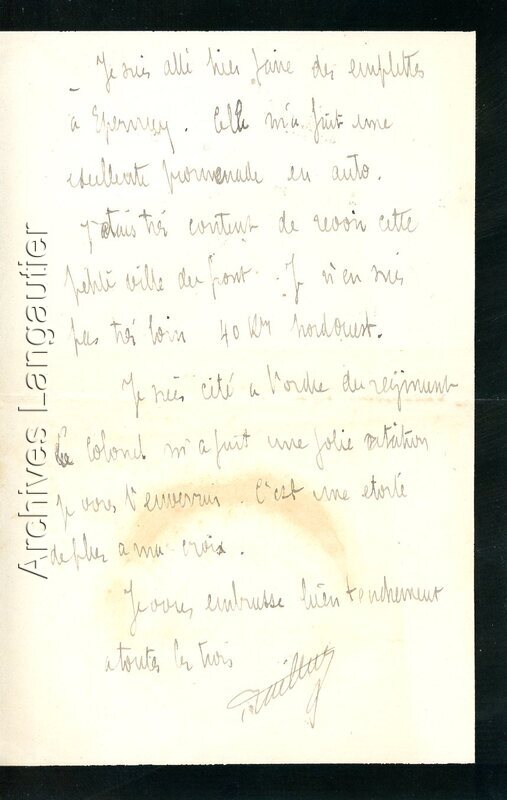 Je suis allé hier faire des emplettes
à Epernay. Cela m'a fait une
excellente promenade en auto.
J'étais très content de revoir cette
petite ville du front. Je n'en suis
pas très loin 40 Km nordouest.
Je suis cité a l'ordre du regiment
Le Colonel m'a fait une jolie citation
je vous l'enverrai. C'est une etoile
de plus a ma croix.
Je vous embrasse bien tendrement
a toutes les trois
Archives Langautier